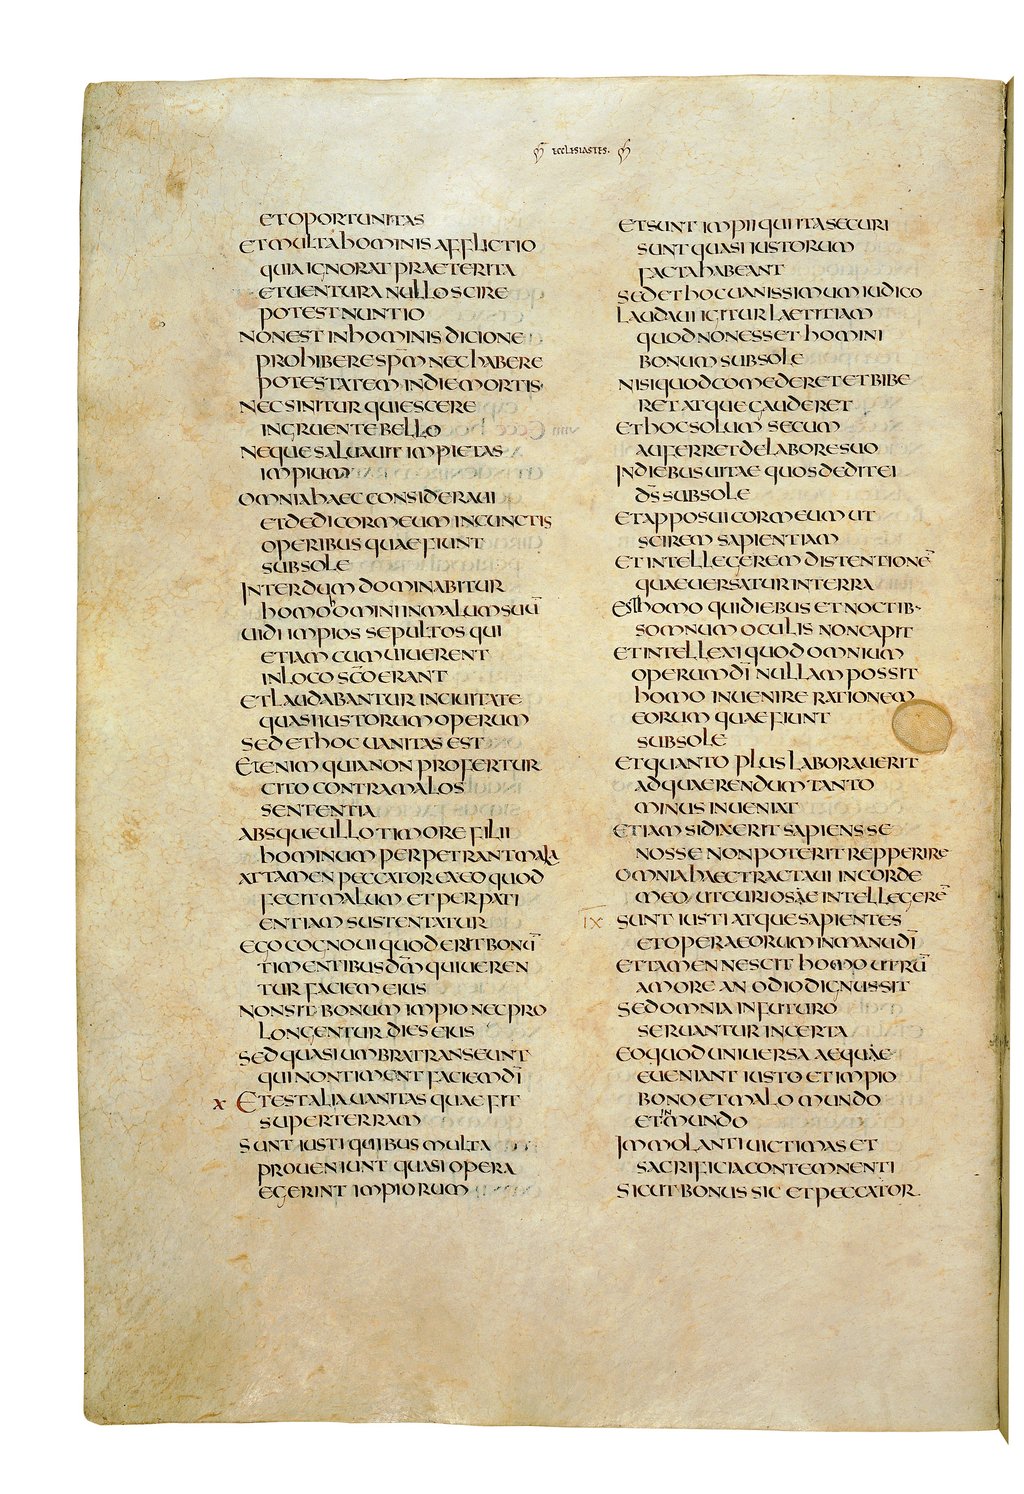 ECCLESIASTES.
ETOPORTUNITAS
ETMULTAHOMINIS AFFLICTIO
QUIA IGNORAT PRAETERITA
ETUENTURA NULLO SCIRE
POTEST NUNTIO
NONEST INHOMINIS DICIONE
PROHIBERE SPM̄ NEC HABERE
POTESTATEM INDIEMORTIS
NEC SINITUR QUIESCERE
INGRUENTE BELLO
NEQUE SALUAUIT IMPIETAS
IMPIUM
OMNIAHAEC CONSIDERAUI
ETDEDI COR MEUM INCUNCTIS
OPERIBUS QUAE FIUNT
SUBSOLE
INTERDUM DOMINABITUR
HOMO HOMINI INMALUM SUŪ
UIDI IMPIOS SEPULTOS QUI
ETIAM CUM UIUERENT
INLOCO SC̄O ERANT
ETLAUDABANTUR INCIUITATE
QUASI IUSTORUM OPERUM
SED ETHOC UANITAS EST
ETENIM QUIA NON PROFERTUR
CITO CONTRA MALOS
SENTENTIA
ABSQUE ULLO TIMORE FILII
HOMINUM PERPETRANT MALA
ATTAMEN PECCATOR EX EO QUOD
FECIT MALUM ET PER PATI
ENTIAM SUSTENTATUR
EGO COGNOUI QUOD ERIT BONŪ
TIMENTIBUS DM̄ QUI UEREN
TUR FACIEM EIUS
NONSIT BONUM IMPIO NEC PRO
LONGENTUR DIES EIUS
SED QUASI UMBRA TRANSEUNT
QUI NONTIMENT FACIEM DĪ
X ETEST ALIA UANITAS QUAE FIT
SUPER TERRAM
SUNT IUSTI QUIBUS MULTA
PROUENIUNT QUASI OPERA
EGERINT IMPIORUM
ETSUNT IMPII QUI ITA SECURI
SUNT QUASI IUSTORUM
FACTA HABEANT
SED ET HOC UANISSIMUM IUDICO
LAUDAUI IGITUR LAETITIAM
QUOD NON ESSET HOMINI
BONUM SUBSOLE
NISI QUOD COMEDERET ET BIBE
RET ATQUE GAUDERET
ET HOC SOLUM SECUM
AUFERRET DE LABORE SUO
INDIEBUS UITAE QUOS DEDIT EI
DS̄ SUBSOLE
ET APPOSUI COR MEUM UT
SCIREM SAPIENTIAM
ET INTELLEGEREM DISTENTIONĒ
QUAE UERSATUR INTERRA
EST HOMO QUI DIEBUS ET NOCTIB·
SOMNUM OCULIS NON CAPIT
ET INTELLEXI QUOD OMNIUM
OPERUM DĪ NULLAM POSSIT
HOMO INUENIRE RATIONEM
EORUM QUAE FIUNT
SUBSOLE
ET QUANTO PLUS LABORAUERIT
AD QUAERENDUM TANTO
MINUS INUENIAT
ETIAM SI DIXERIT SAPIENS SE
NOSSE NON POTERIT REPPERIRE
OMNIA HAEC TRACTAUI INCORDE
MEO UT CURIOSAE INTELLEGERĒ
IX SUNT IUSTI ATQUE SAPIENTES
ET OPERA EORUM IN MANU DĪ
ET TAMEN NESCIT HOMO UTRŪ
AMORE AN ODIO DIGNUS SIT
SED OMNIA IN FUTURO
SERUANTUR INCERTA
EO QUOD UNIUERSA AEQUAE
EUENIANT IUSTO ET IMPIO
BONO ET MALO MUNDO
ET INMUNDO
IMMOLANTI UICTIMAS ET
SACRIFICIA CONTEMNENTI
SICUT BONUS SIC ET PECCATOR